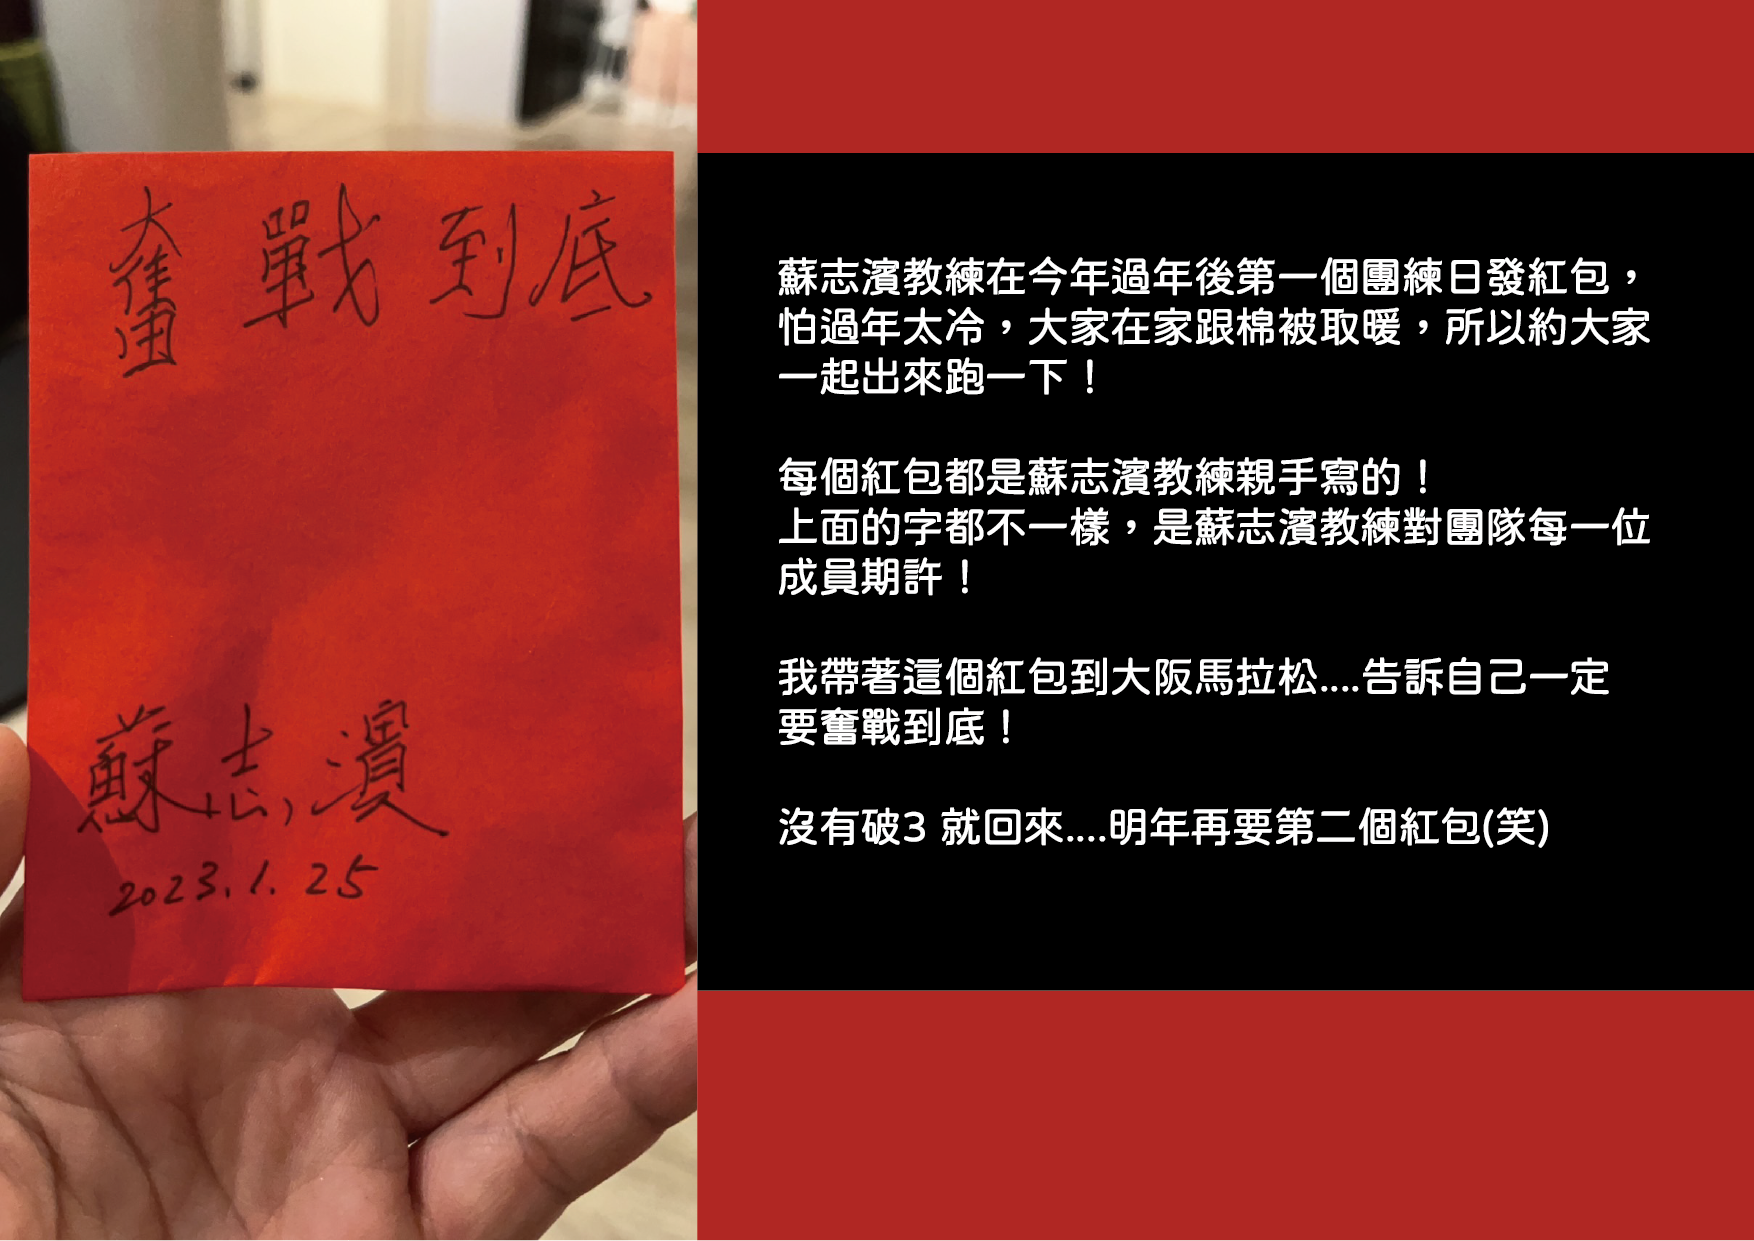 奮戰到底
蘇志濱
2023.1.25
蘇志濱教練在今年過年後第一個團練日發紅包，
怕過年太冷，大家在家跟棉被取暖，所以約大家
一起出來跑一下！
每個紅包都是蘇志濱教練親手寫的！
上面的字都不一樣，是蘇志濱教練對團隊每一位
成員期許！
我帶著這個紅包到大阪馬拉松....告訴自己一定
要奮戰到底！
沒有破3 就回來....明年再要第二個紅包(笑)